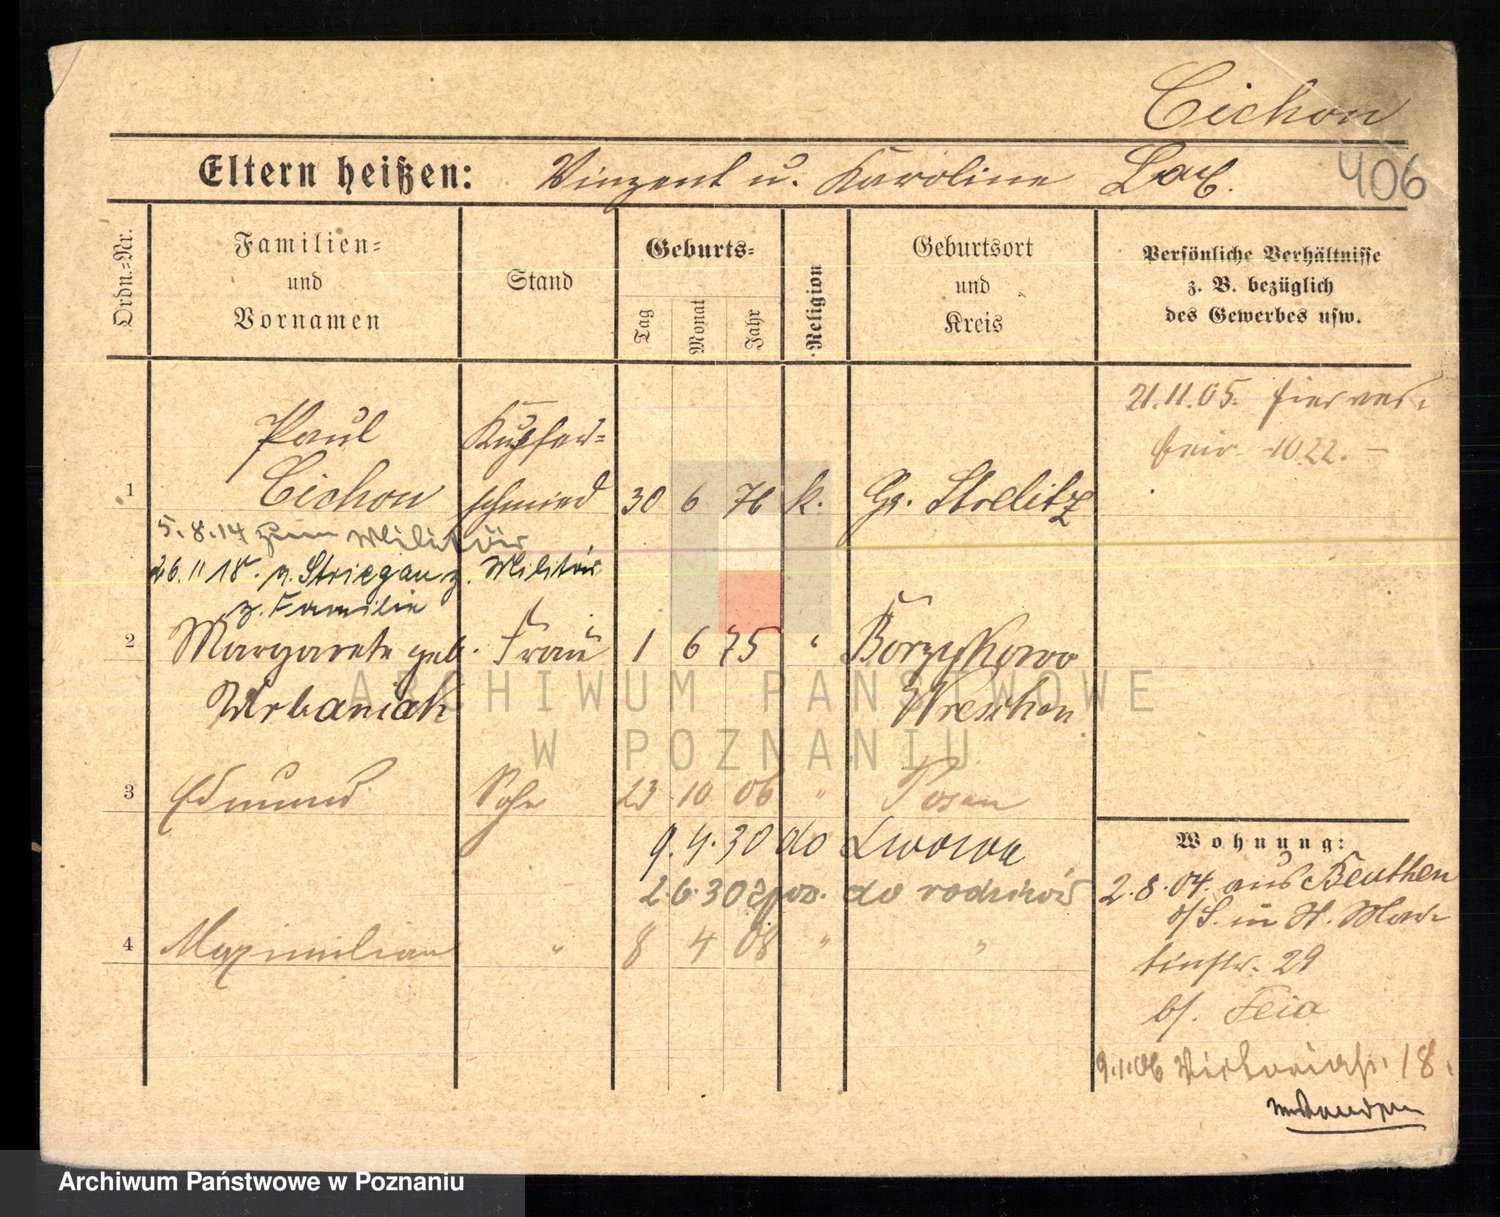 Cichon
406
Eltern heißen: Vinzent u. Karoline
Ordn.-Nr.
Familien-
und
Vornamen
Stand
Geburts-
Tag
Monat
Jahr
Religion
Geburtsort
und
Kreis
Persönliche Verhältnisse
z. B. bezüglich
des Gewerbes usw.
21.11.05. hier ver-
heir. 1022. –
Paul
Kupfer-
1 Cichon schmied 30 6 76 k. Gr. Strelitz
5.8.14 zum Militär
26.11 18. n. Striegau z. Militär
z. Familie
2 Margarete geb. Frau 1 6 75 " Borzykowo
Urbaniak Wreschen
3 Edmund Sohn 23 10 06 " Posen
9.4.30 do Lwowa
2.6.30 z poz. do rodziców
4 Maximilian " 8 4 08 " "
Wohnung:
2.8.04. aus Beuthen
o/S. in St. Mar-
tinstr. 29
b/.
9.1.06 Victoriastr. 18.
ARCHIWUM PAŃSTWOWE
W POZNANIU
Archiwum Państwowe w Poznaniu